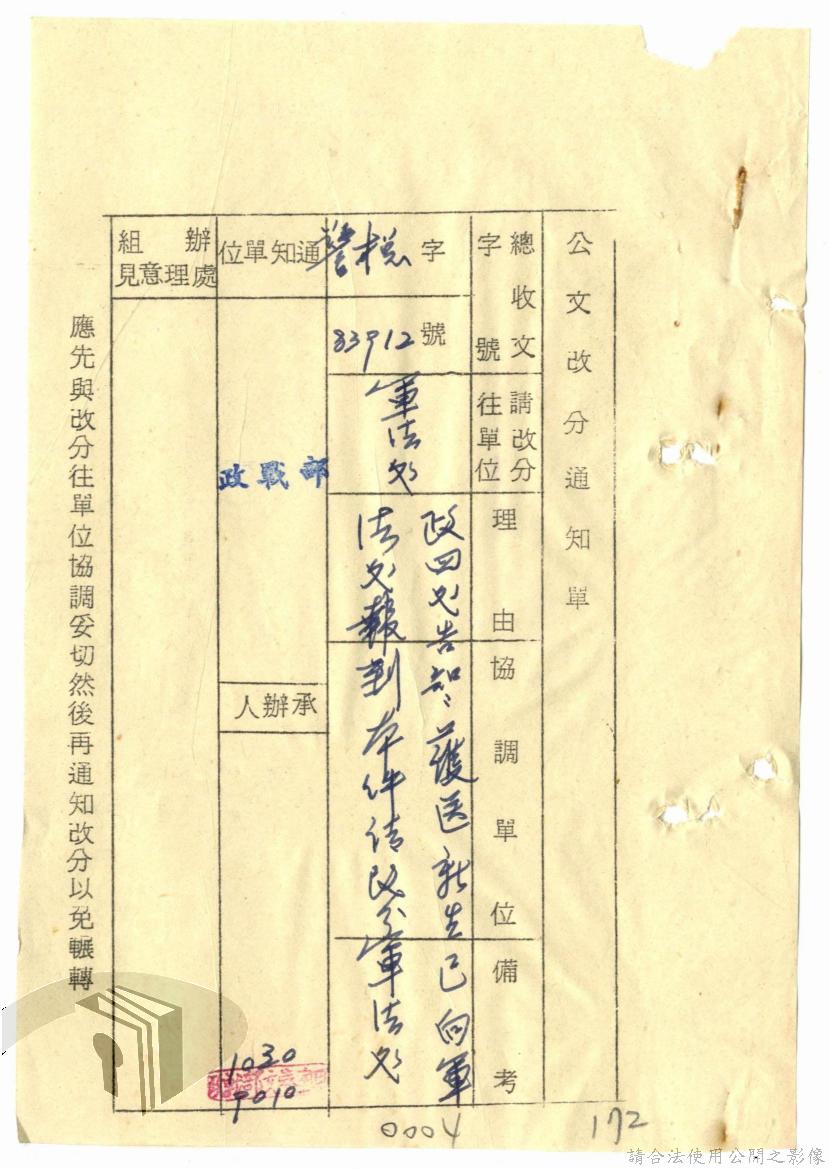 公文改分通知單
總收文
字號
警總字
83912號
請改分
往單位
軍法処
理由
協調單位
備考
政四処告知:護送新生已向軍
法処報到本件請改分軍法処
通知單位
政戰部
承辦人
1030
9010
辦組
處理意見
應先與改分往單位協調妥切然後再通知改分以免輾轉
0004
172
請合法使用公開之影像